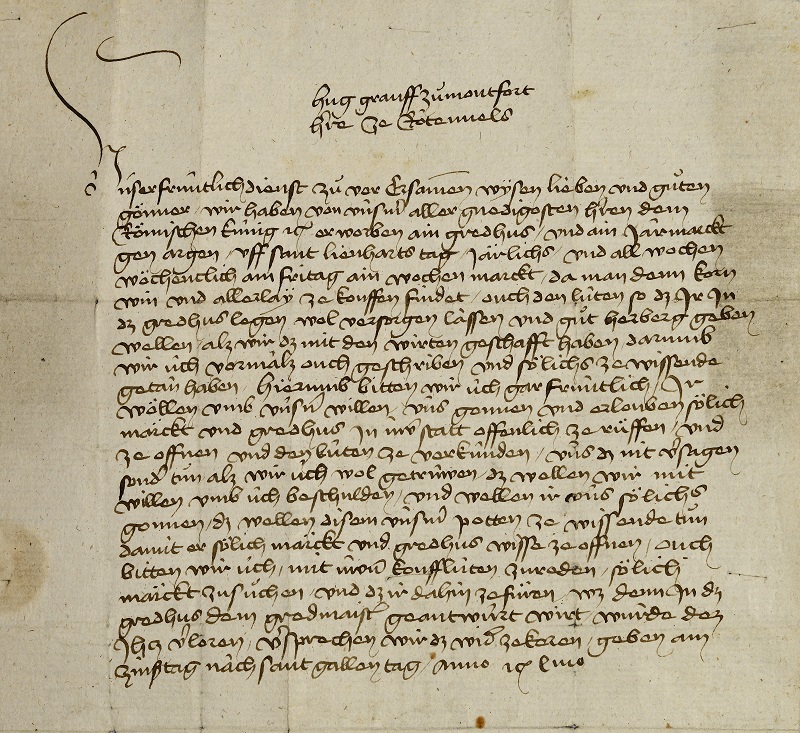 hug grauff zů montfort
h're ze Rotenuels
Unser früntlich dienst zů vor Ersamen wysen lieben vnd gůten
gönner, wir haben von vnserm aller gnedigosten h'ren dem
Römischen küng etc erworben ain gredhus, vnd ain Jarmarckt
gen argen, vff sant lienharts tag, Järlichs, vnd all wochen
wöchenclich am fritag ain wochen marckt, da man denn korn
win vnd allerlay ze kouffen findet, ouch den lüten so dz Ir In
dz gredhus legen wol versorgen lassen vnd gůt herberg geben
wellen, alz wir dz mit den wirten geschafft haben darumb
wir üch vormalz ouch geschriben vnd sölichs ze wissende
getän haben, hierumb bitten wir üch gar früntlich, Ir
wöllen vmb vnsern willen, vns gonnen vnd erlouben sölich
märckt vnd gredhus In uwer statt offenlich ze rüffen, vnd
ze offnen vnd den lüten ze verkünden, vns dz nit v'sagen
sond' tün alz wir üch wol getruwen, dz wellen wir mit
willen vmb üch beschulden, vnd wellen ir vns sölichs
gonnen, dz wellen disem vnserm potten ze wissende tůn
damit er sölich märckt vnd gredhus wisse ze offnen, ouch
bitten wir üch, mit uwern kouffluten zureden, sölich
märckt zusůchen, vnd dz ir dahin zefüren, wz denn In dz
gredhus dem gredmaister geantwurt wirt, wurde dez
Ihtz v'loren, v'sprechen wir dz wid' zekeren, geben am
zinstag nach sant gallen tag, Anno etc lmo